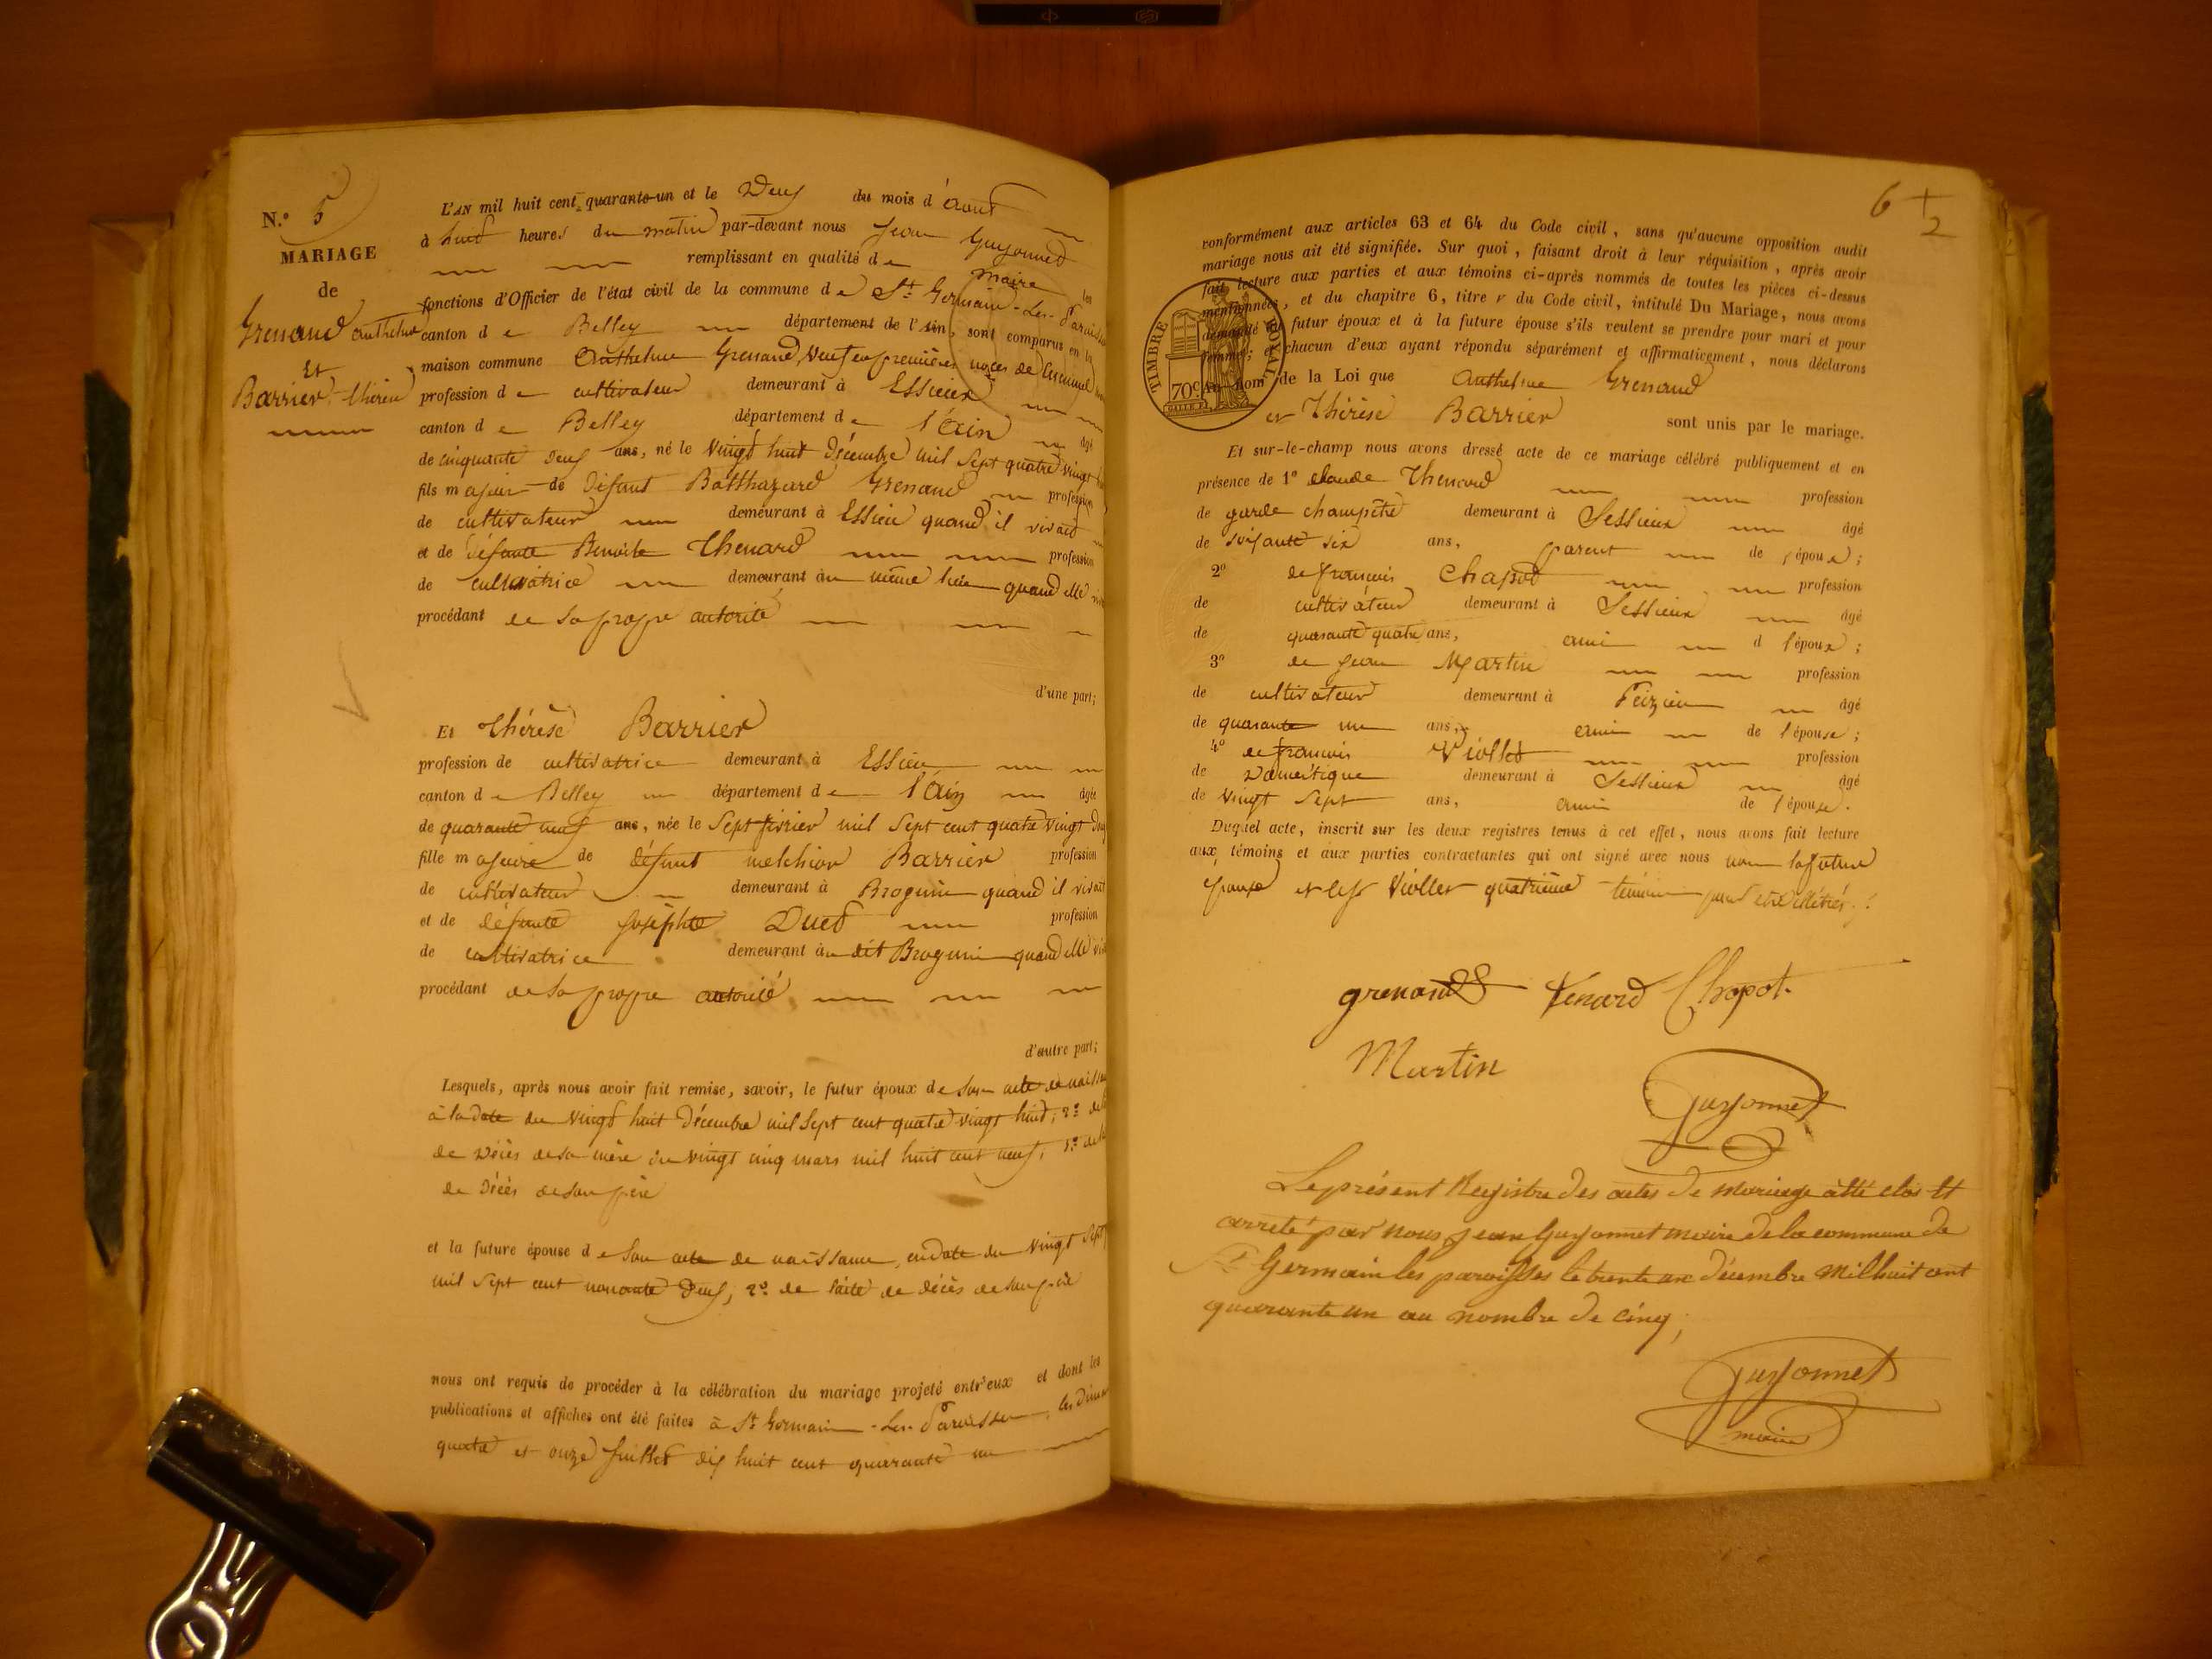 N.° 5
MARIAGE
de
Grenaud Anthelme
Et
Barrier Thérèse
L'AN mil huit cent quarante-un et le Deux du mois d'août
à huit heures du matin par-devant nous Jean Guyonnet
remplissant en qualité de maire les
fonctions d'Officier de l'état civil de la commune de St. Germain-Les-Paroisses
canton de Belley département de l'Ain, sont comparus en la
maison commune Anthelme Grenaud, Veuf en premières noces de
profession de cultivateur demeurant à Essieux
canton de Belley département de l'Ain âgé
de cinquante deux ans, né le vingt huit Décembre mil sept quatre vingt
fils majeur de Défunt Balthazard Grenaud profession
de cultivateur demeurant à Essieu quand il vivait
et de Défunte Benoite Thenard profession
de cultivatrice demeurant au même lieu quand elle
procédant de sa propre autorité
d'une part;
Et Thérèse Barrier
profession de cultivatrice demeurant à Essieu
canton de Belley département de l'Ain âgée
de quarante neuf ans, née le Sept février mil Sept cent quatre vingt
fille majeure de défunt melchior Barrier profession
de cultivateur demeurant à Brognin quand il vivait
et de défunte Josephte Duct profession
de cultivatrice demeurant au dit Brognin quand elle
procédant de sa propre autorité
d'autre part;
Lesquels, après nous avoir fait remise, savoir, le futur époux de son acte de
à la date du vingt huit Décembre mil Sept cent quatre vingt huit; 2° de
de Décès de sa mère du vingt cinq mars mil huit cent neuf; 3° de
de Décès de son père
et la future épouse de son acte de naissance, en date du vingt Sept
mil Sept cent nonante Deux, 2° de l'acte de décès de son père
nous ont requis de procéder à la célébration du mariage projeté entr'eux et dont les
publications et affiches ont été faites à St Germain-Les-Paroisses, les
quatre et onze Juillet dix huit cent quarante un
6 +
2
conformément aux articles 63 et 64 du Code civil, sans qu'aucune opposition audit
mariage nous ait été signifiée. Sur quoi, faisant droit à leur réquisition, après avoir
fait lecture aux parties et aux témoins ci-après nommés de toutes les pièces ci-dessus
mentionnées, et du chapitre 6, titre v du Code civil, intitulé Du Mariage, nous avons
demandé au futur époux et à la future épouse s'ils veulent se prendre pour mari et pour
femme; et chacun d'eux ayant répondu séparément et affirmativement, nous déclarons
TIMBRE ROYAL
70 c.
Au nom de la Loi que Anthelme Grenaud
et Thérèse Barrier sont unis par le mariage.
Et sur-le-champ nous avons dressé acte de ce mariage célébré publiquement et en
présence de 1° claude Thenard profession
de garde champêtre demeurant à Sessieux âgé
de soixante six ans, parent de l'époux;
2° de françois Chapot profession
de cultivateur demeurant à Sessieux âgé
de quarante quatre ans, ami d l'époux;
3° de Jean Martin profession
de cultivateur demeurant à Peizieu âgé
de quarante un ans, ami de l'épouse;
4° de françois Viollet profession
de Domestique demeurant à Sessieux âgé
de vingt sept ans, ami de l'épouse.
Duquel acte, inscrit sur les deux registres tenus à cet effet, nous avons fait lecture
aux témoins et aux parties contractantes qui ont signé avec nous non la future
épouse et le Sr Viollet quatrième témoin pour être illétrés
grenaud Tenard Chapot
Martin
Guyonnet
Le présent Registre des actes de Mariage à été clos et
arrêté par nous Jean Guyonnet maire de la commune de
St Germain les paroisses le trente un décembre Mil huit cent
quarante un au nombre de cinq;
Guyonnet
maire